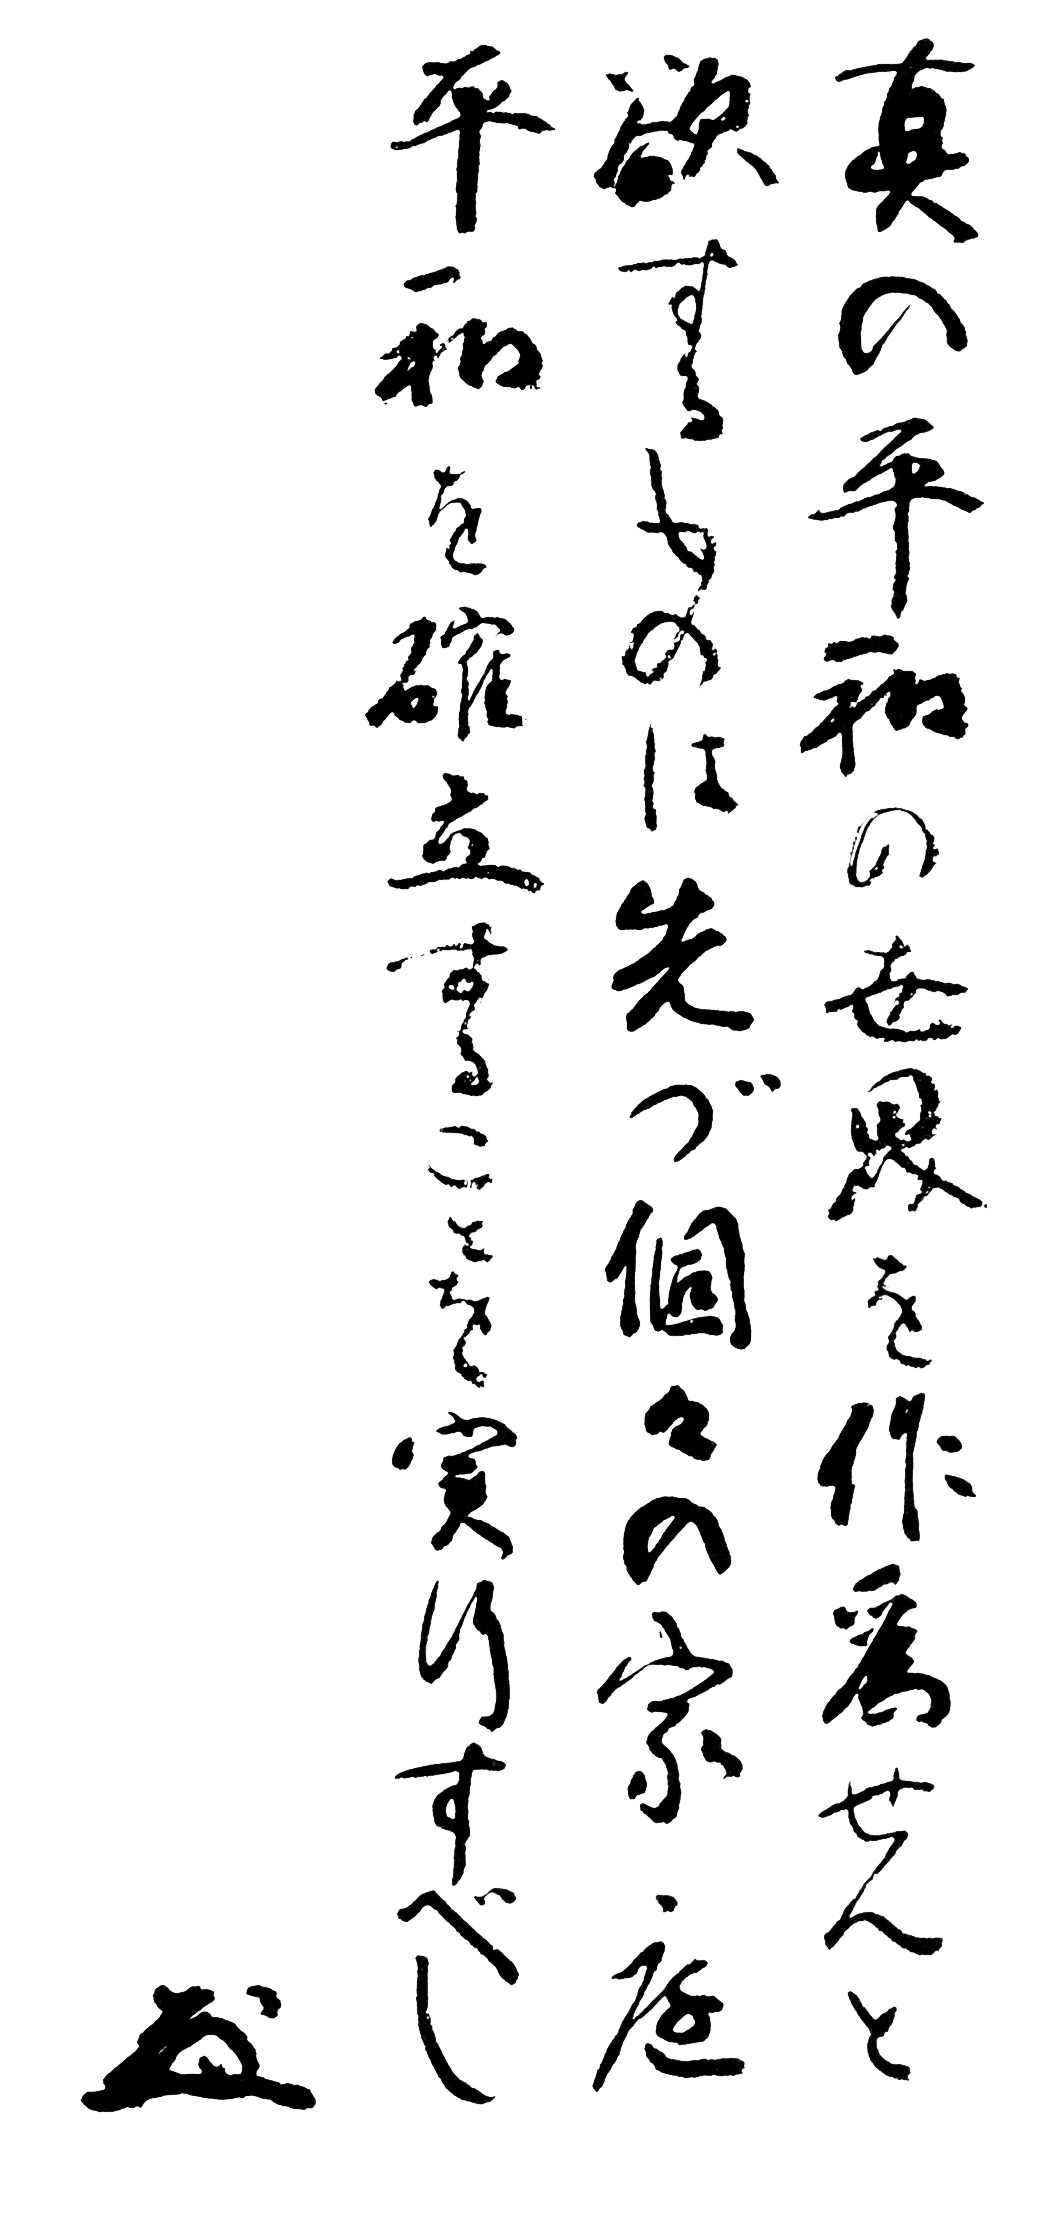 真の平和の世界を作爲せんと
欲するものは先づ個々の家庭
平和を確立することを実行すべし